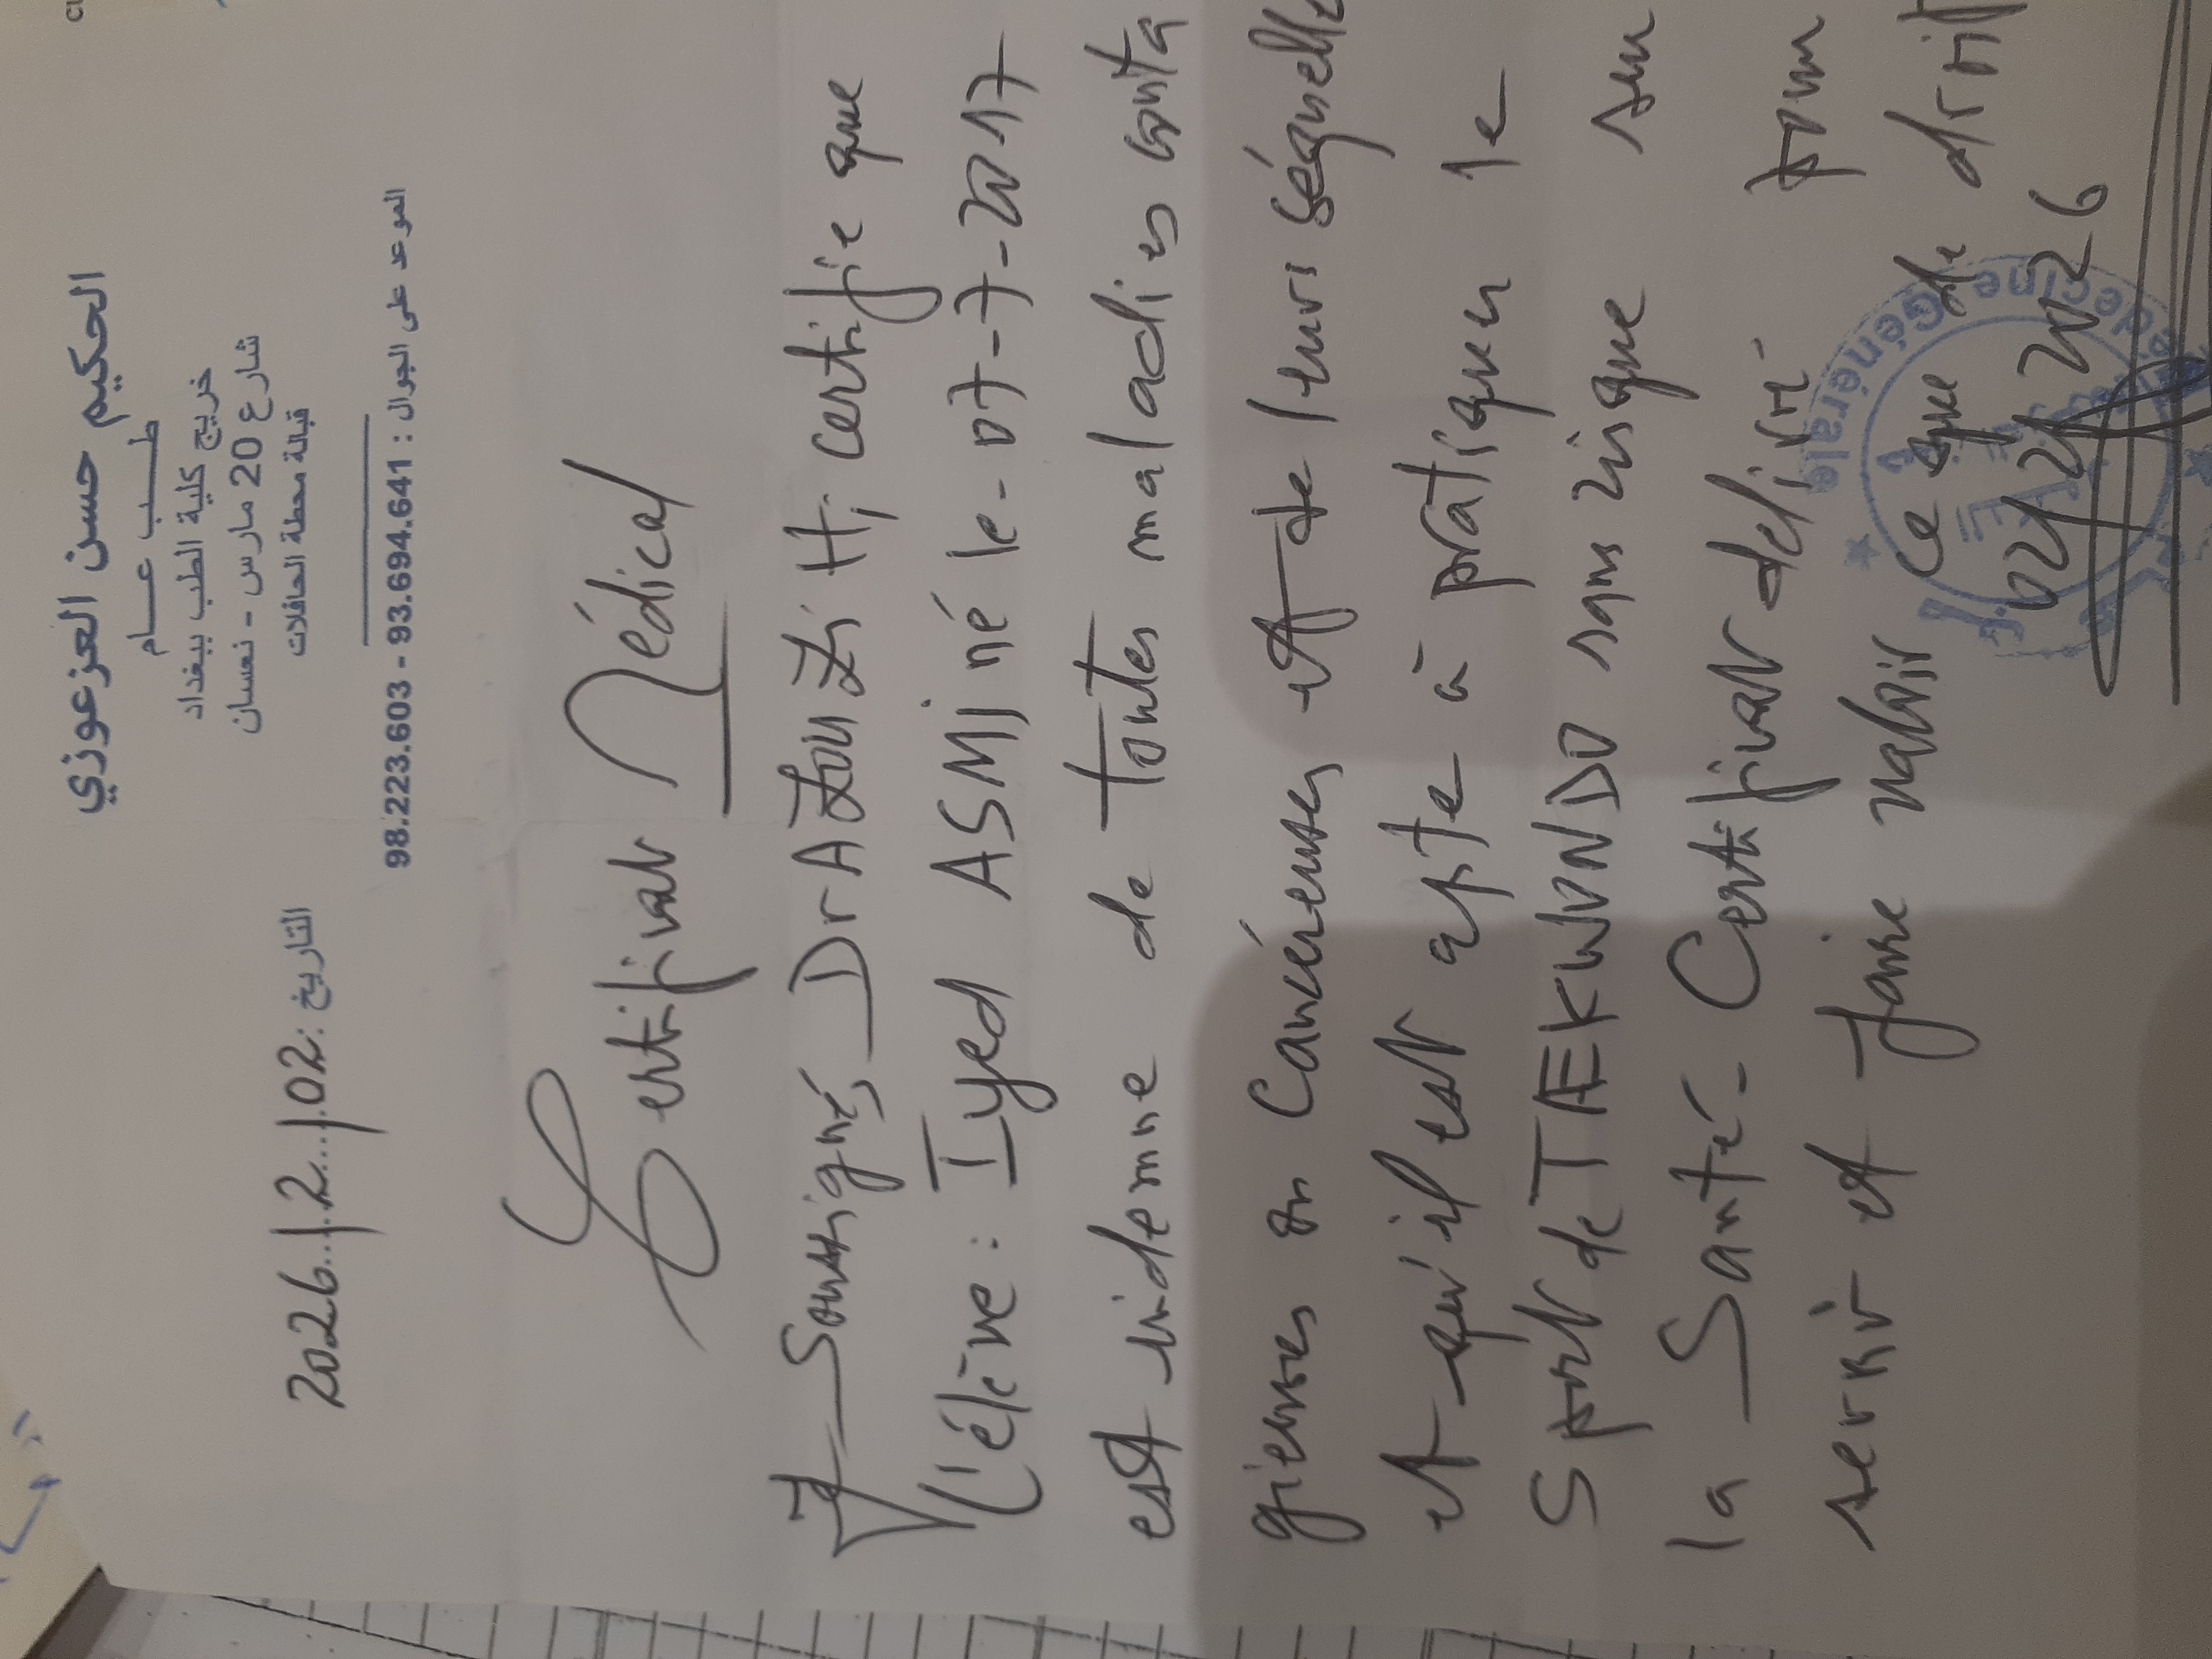 الحكيم حسن العزعوزي
طـــب عـــام
خريج كلية الطب ببغداد
شارع 20 مارس - نعسان
قبالة محطة الحافلات
الموعد على الجوال : 98.223.603 - 93.694.641
التاريخ : 2026/2/02
Certificat Médical
Je Soussigné, Dr AZOUZI H, certifie que
l'élève : Iyed ASMI né le - 07-7-2017
est indemne de toutes maladies conta
gieuses ou Cancéreuses et de leurs séquelle
et qu'il est apte à pratiquer le
Sport de TAEKWONDO sans risque sur
la Santé - Certificat délivré pour
servir et faire valoir ce que de droit
02/2/2026
Médecine Générale